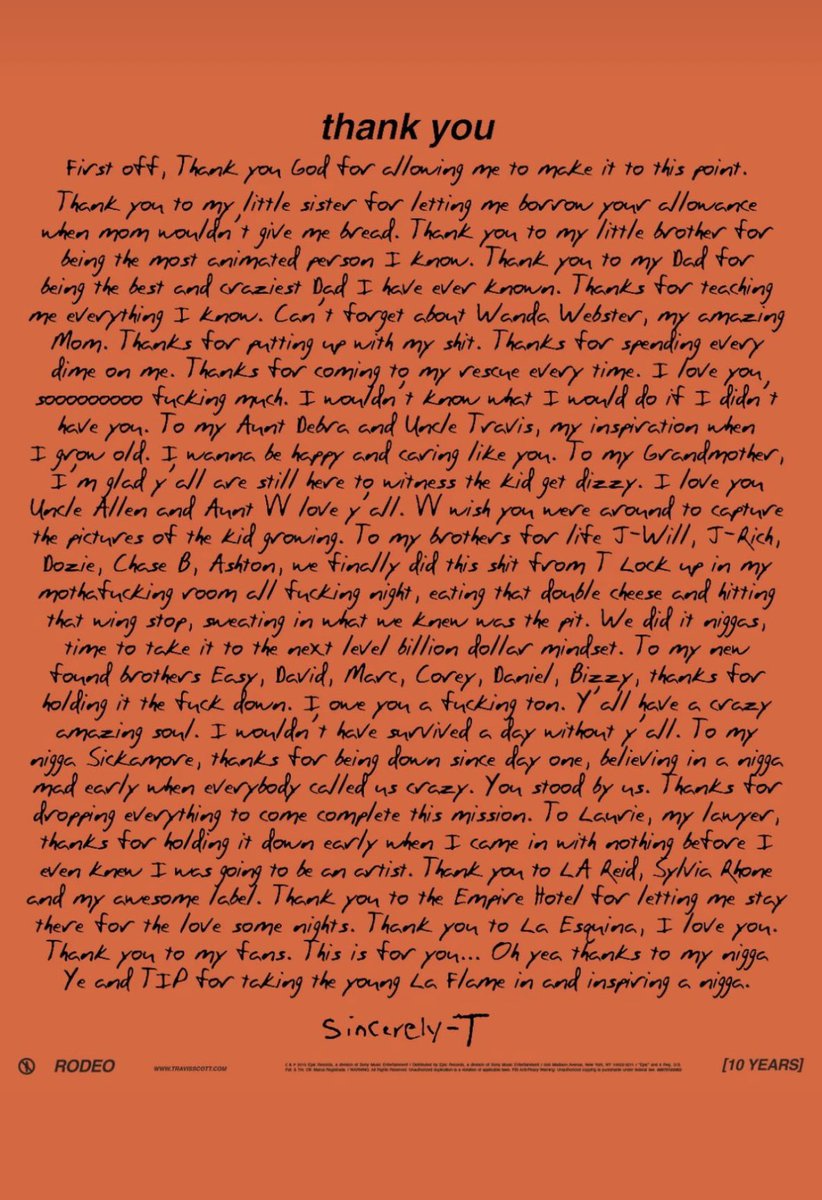 thank you
First off, Thank you God for allowing me to make it to this point.
Thank you to my little sister for letting me borrow your allowance
when mom wouldn't give me bread. Thank you to my little brother for
being the most animated person I know. Thank you to my Dad for
being the best and craziest Dad I have ever known. Thanks for teaching
me everything I know. Can't forget about Wanda Webster, my amazing
Mom. Thanks for putting up with my shit. Thanks for spending every
dime on me. Thanks for coming to my rescue every time. I love you,
soooooooooo fucking much. I wouldn't know what I would do if I didn't
have you. To my Aunt Debra and Uncle Travis, my inspiration when
I grow old. I wanna be happy and caring like you. To my Grandmother,
I'm glad y'all are still here to witness the kid get dizzy. I love you
Uncle Allen and Aunt W love y'all. W wish you were around to capture
the pictures of the kid growing. To my brothers for life J-Will, J-Rich,
Dozie, Chase B, Ashton, we finally did this shit from T Lock up in my
mothafucking room all fucking night, eating that double cheese and hitting
that wing stop, sweating in what we knew was the pit. We did it niggas,
time to take it to the next level billion dollar mindset. To my new
found brothers Easy, David, Marc, Corey, Daniel, Bizzy, thanks for
holding it the fuck down. I owe you a fucking ton. Y'all have a crazy
amazing soul. I wouldn't have survived a day without y'all. To my
nigga Sickamore, thanks for being down since day one, believing in a nigga
mad early when everybody called us crazy. You stood by us. Thanks for
dropping everything to come complete this mission. To Laurie, my lawyer,
thanks for holding it down early when I came in with nothing before I
even knew I was going to be an artist. Thank you to LA Reid, Sylvia Rhone
and my awesome label. Thank you to the Empire Hotel for letting me stay
there for the love some nights. Thank you to La Esquina, I love you.
Thank you to my fans. This is for you... Oh yea thanks to my nigga
Ye and TIP for taking the young La Flame in and inspiring a nigga.
Sincerely-T
RODEO
WWW.TRAVISSCOTT.COM
[10 YEARS]